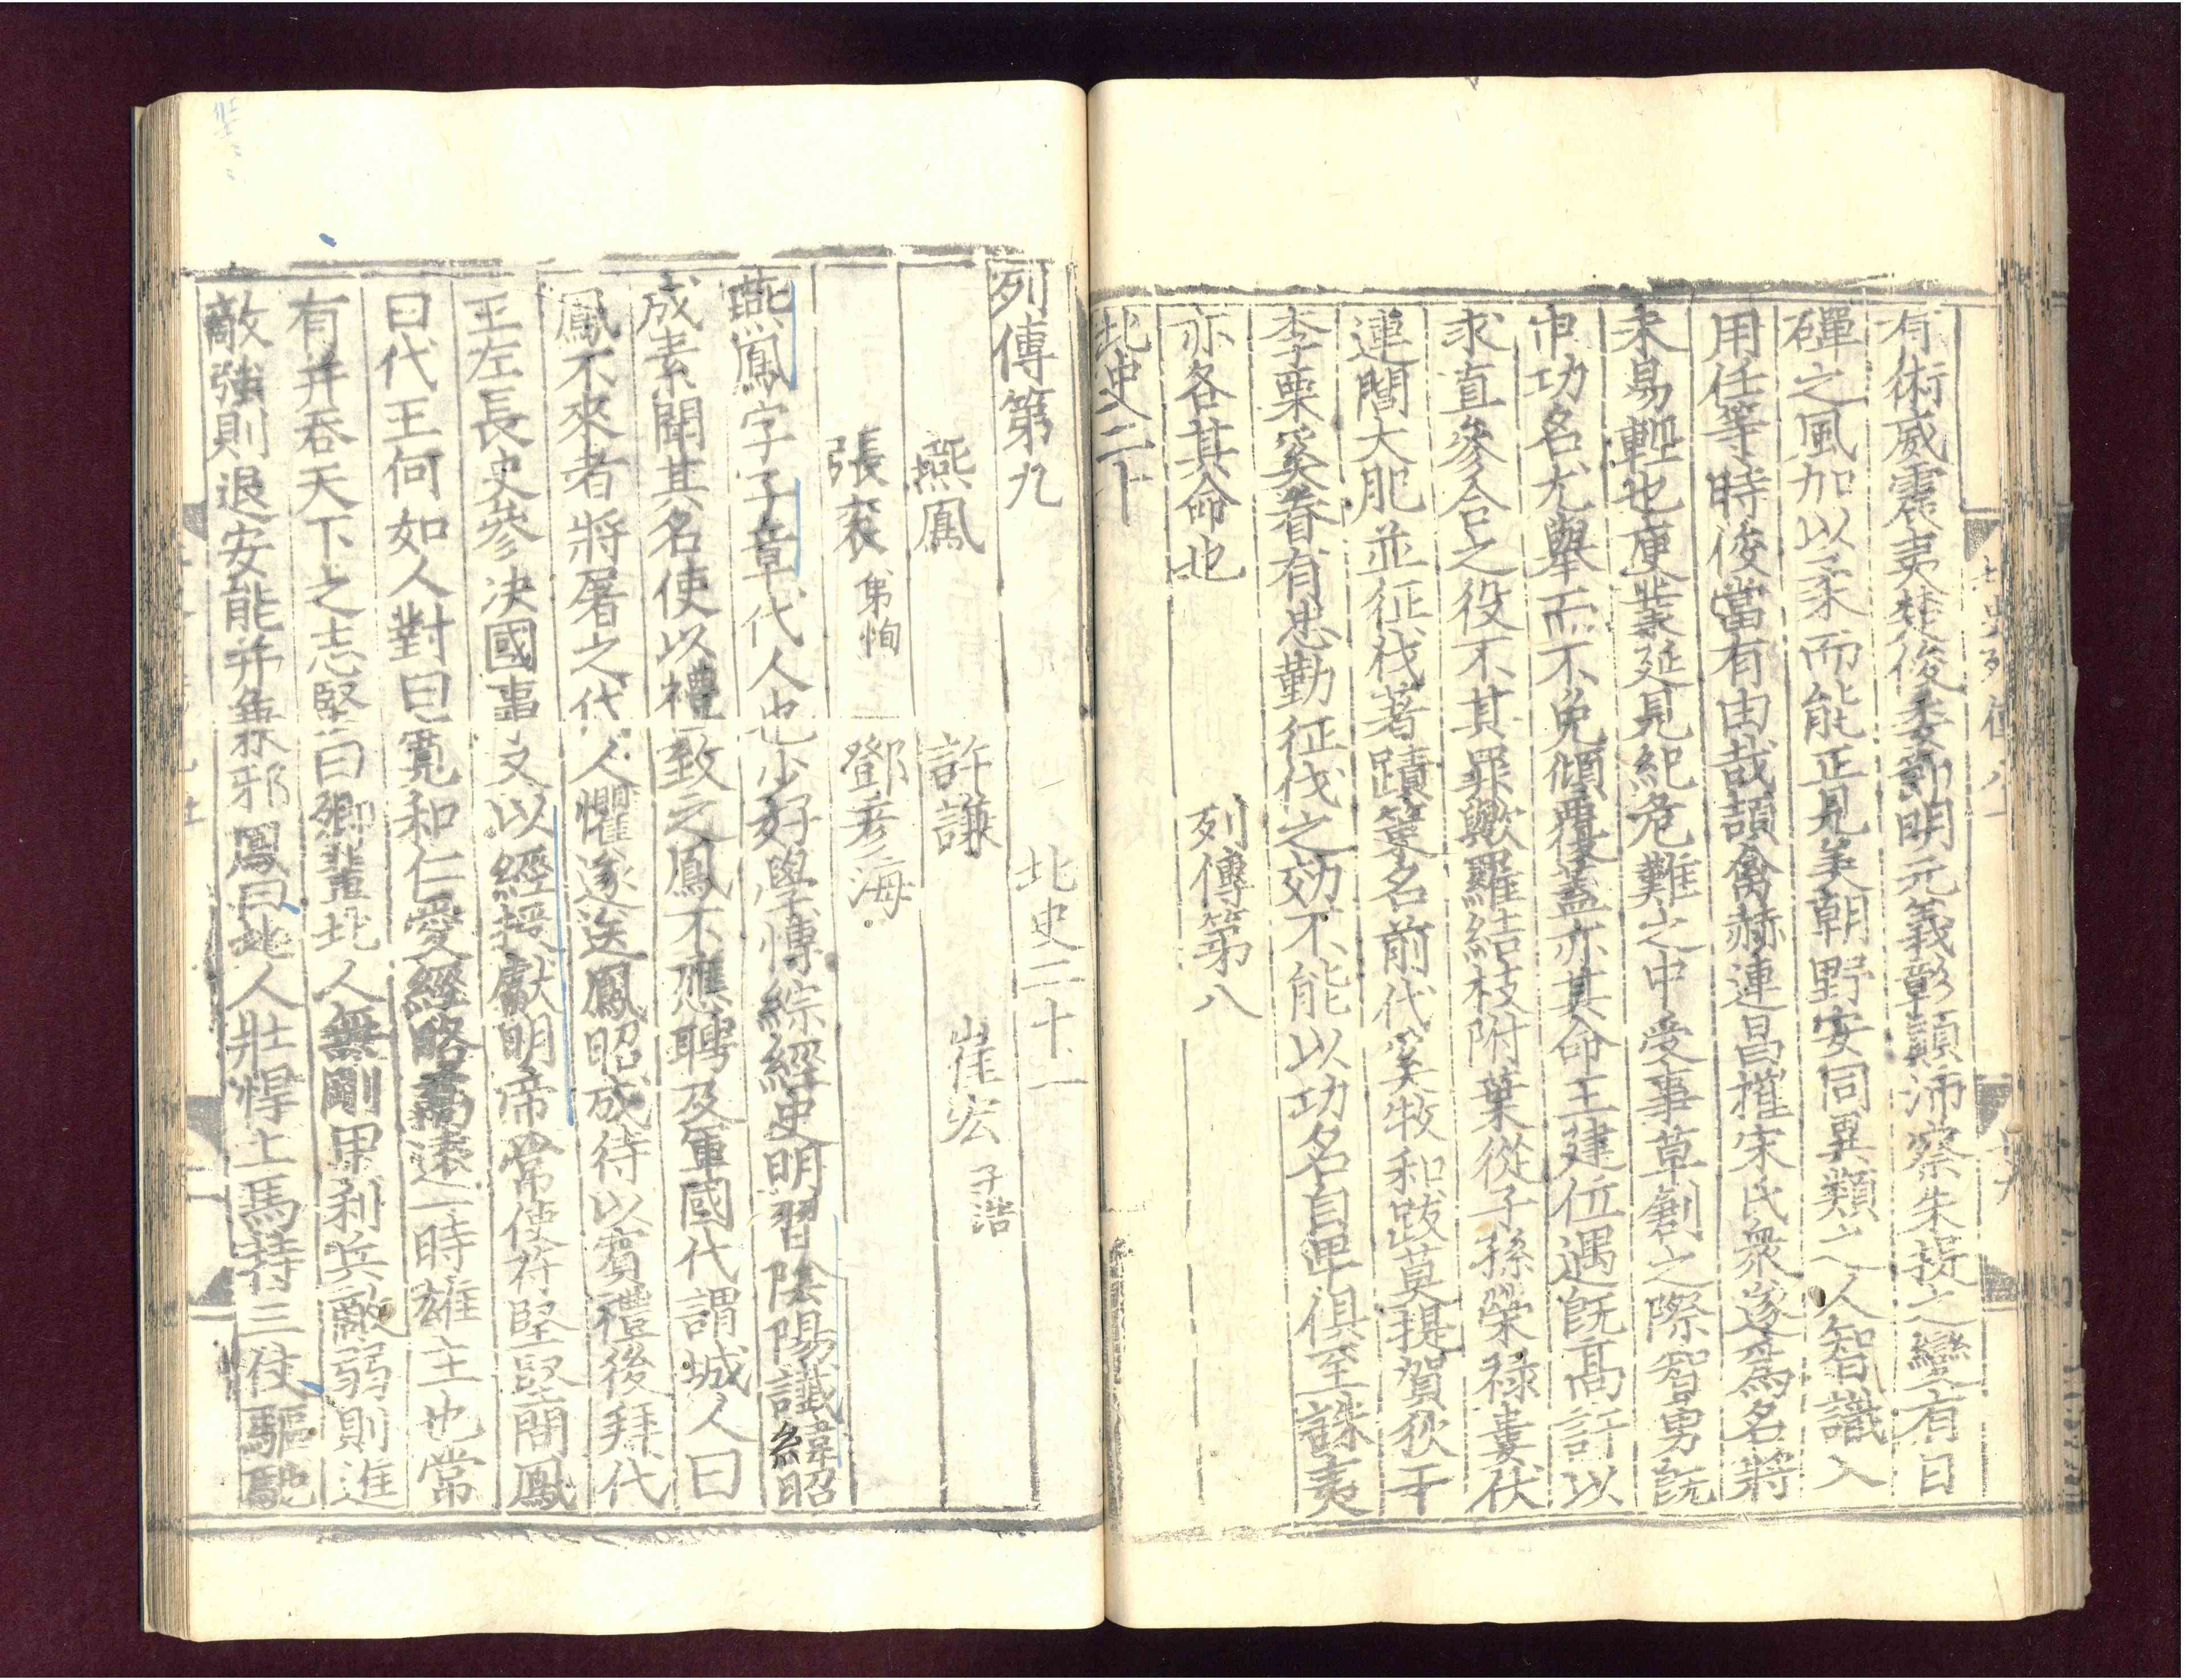 有術威震夷楚俊委節明元義彰顛沛察朱提之變有日
磾之風加以柔而能正見美朝野安同異類之人智識入
用任等時俊當有由哉頡禽赫連昌摧宋氏衆遂爲名將
未易輕也庾業延見紀危難之中受事草創之際智勇旣
申功名尤舉而不免傾覆蓋亦其命王建位遇旣髙計以
求直參合之役不其罪歟羅結枝附葉從子孫榮祿婁伏
連閭大肥並征伐著蹟策名前代奚牧和跋莫提賀狄干
李栗奚眷有忠勤征伐之効不能以功名自畢俱至誅夷
亦各其命也
列傳第八
北史二十
列傳第九
北史二十一
燕鳳
許謙
崔宏 子浩
張衮 弟恂
鄧彦海
燕鳳字子章代人也少好學博綜經史明習陰陽讖緯昭
成素聞其名使以禮致之鳳不應聘及軍國代謂城人曰
鳳不來者將屠之代人懼遂送鳳昭成待以賓禮後拜代
王左長史參決國事又以經授獻明帝常使苻堅堅問鳳
曰代王何如人對曰寛和仁愛經略髙遠一時雄主也常
有并吞天下之志堅曰卿輩北人無剛甲利兵敵弱則進
敵強則退安能并兼邪鳳曰北人壯悍上馬持三仗驅馳